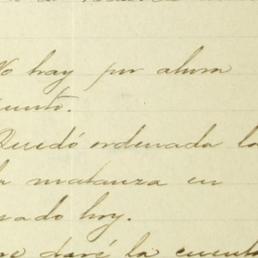 No hay por ahora
Quedó ordenada la
matanza en
hoy.
daré la cuenta